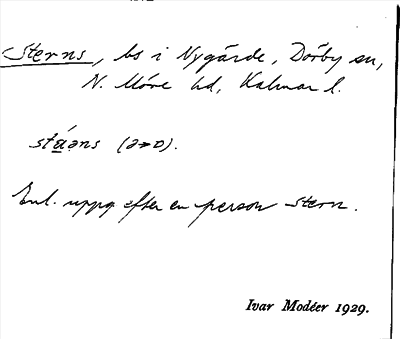 Sterns, bs i Nygärde, Dörby sn,
N. Möre hd, Kalmar l.
Enl. uppg efter en person Stern.
Ivar Modéer 1929.